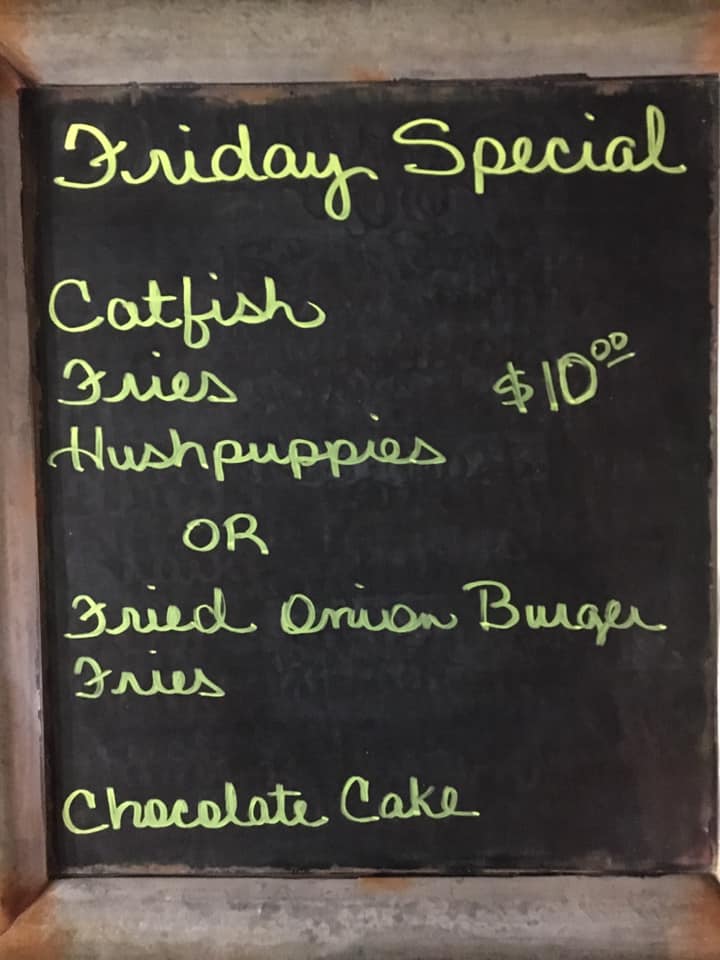 Friday Special
Catfish
Fries $10⁰⁰
Hushpuppies
OR
Fried Onion Burger
Fries
Chocolate Cake